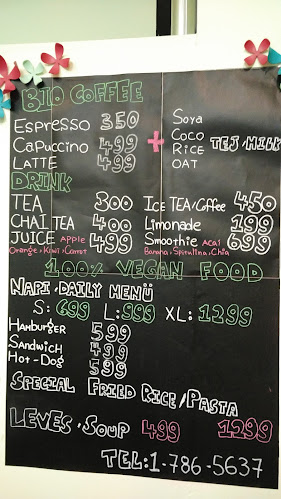 BIO COFFEE
Espresso 350
Capuccino 499
LATTE 499
+
Soya
Coco
RICE
OAT
TEJ/MILK
DRINK
TEA 300
CHAI TEA 400
JUICE Apple 499
Orange, Kiwi, Carrot
ICE TEA/Coffee 450
Limonade 199
Smoothie Acai 699
Banana, Spirulina, Chia
100% VEGAN FOOD
NAPI, DAILY MENÜ
S: 699 L: 999 XL: 1299
HAMBURGER 599
SANDWICH 499
HOT-DOG 599
SPECIAL FRIED RICE/PASTA
LEVES, SOUP 499 1299
TEL:1-786-5637